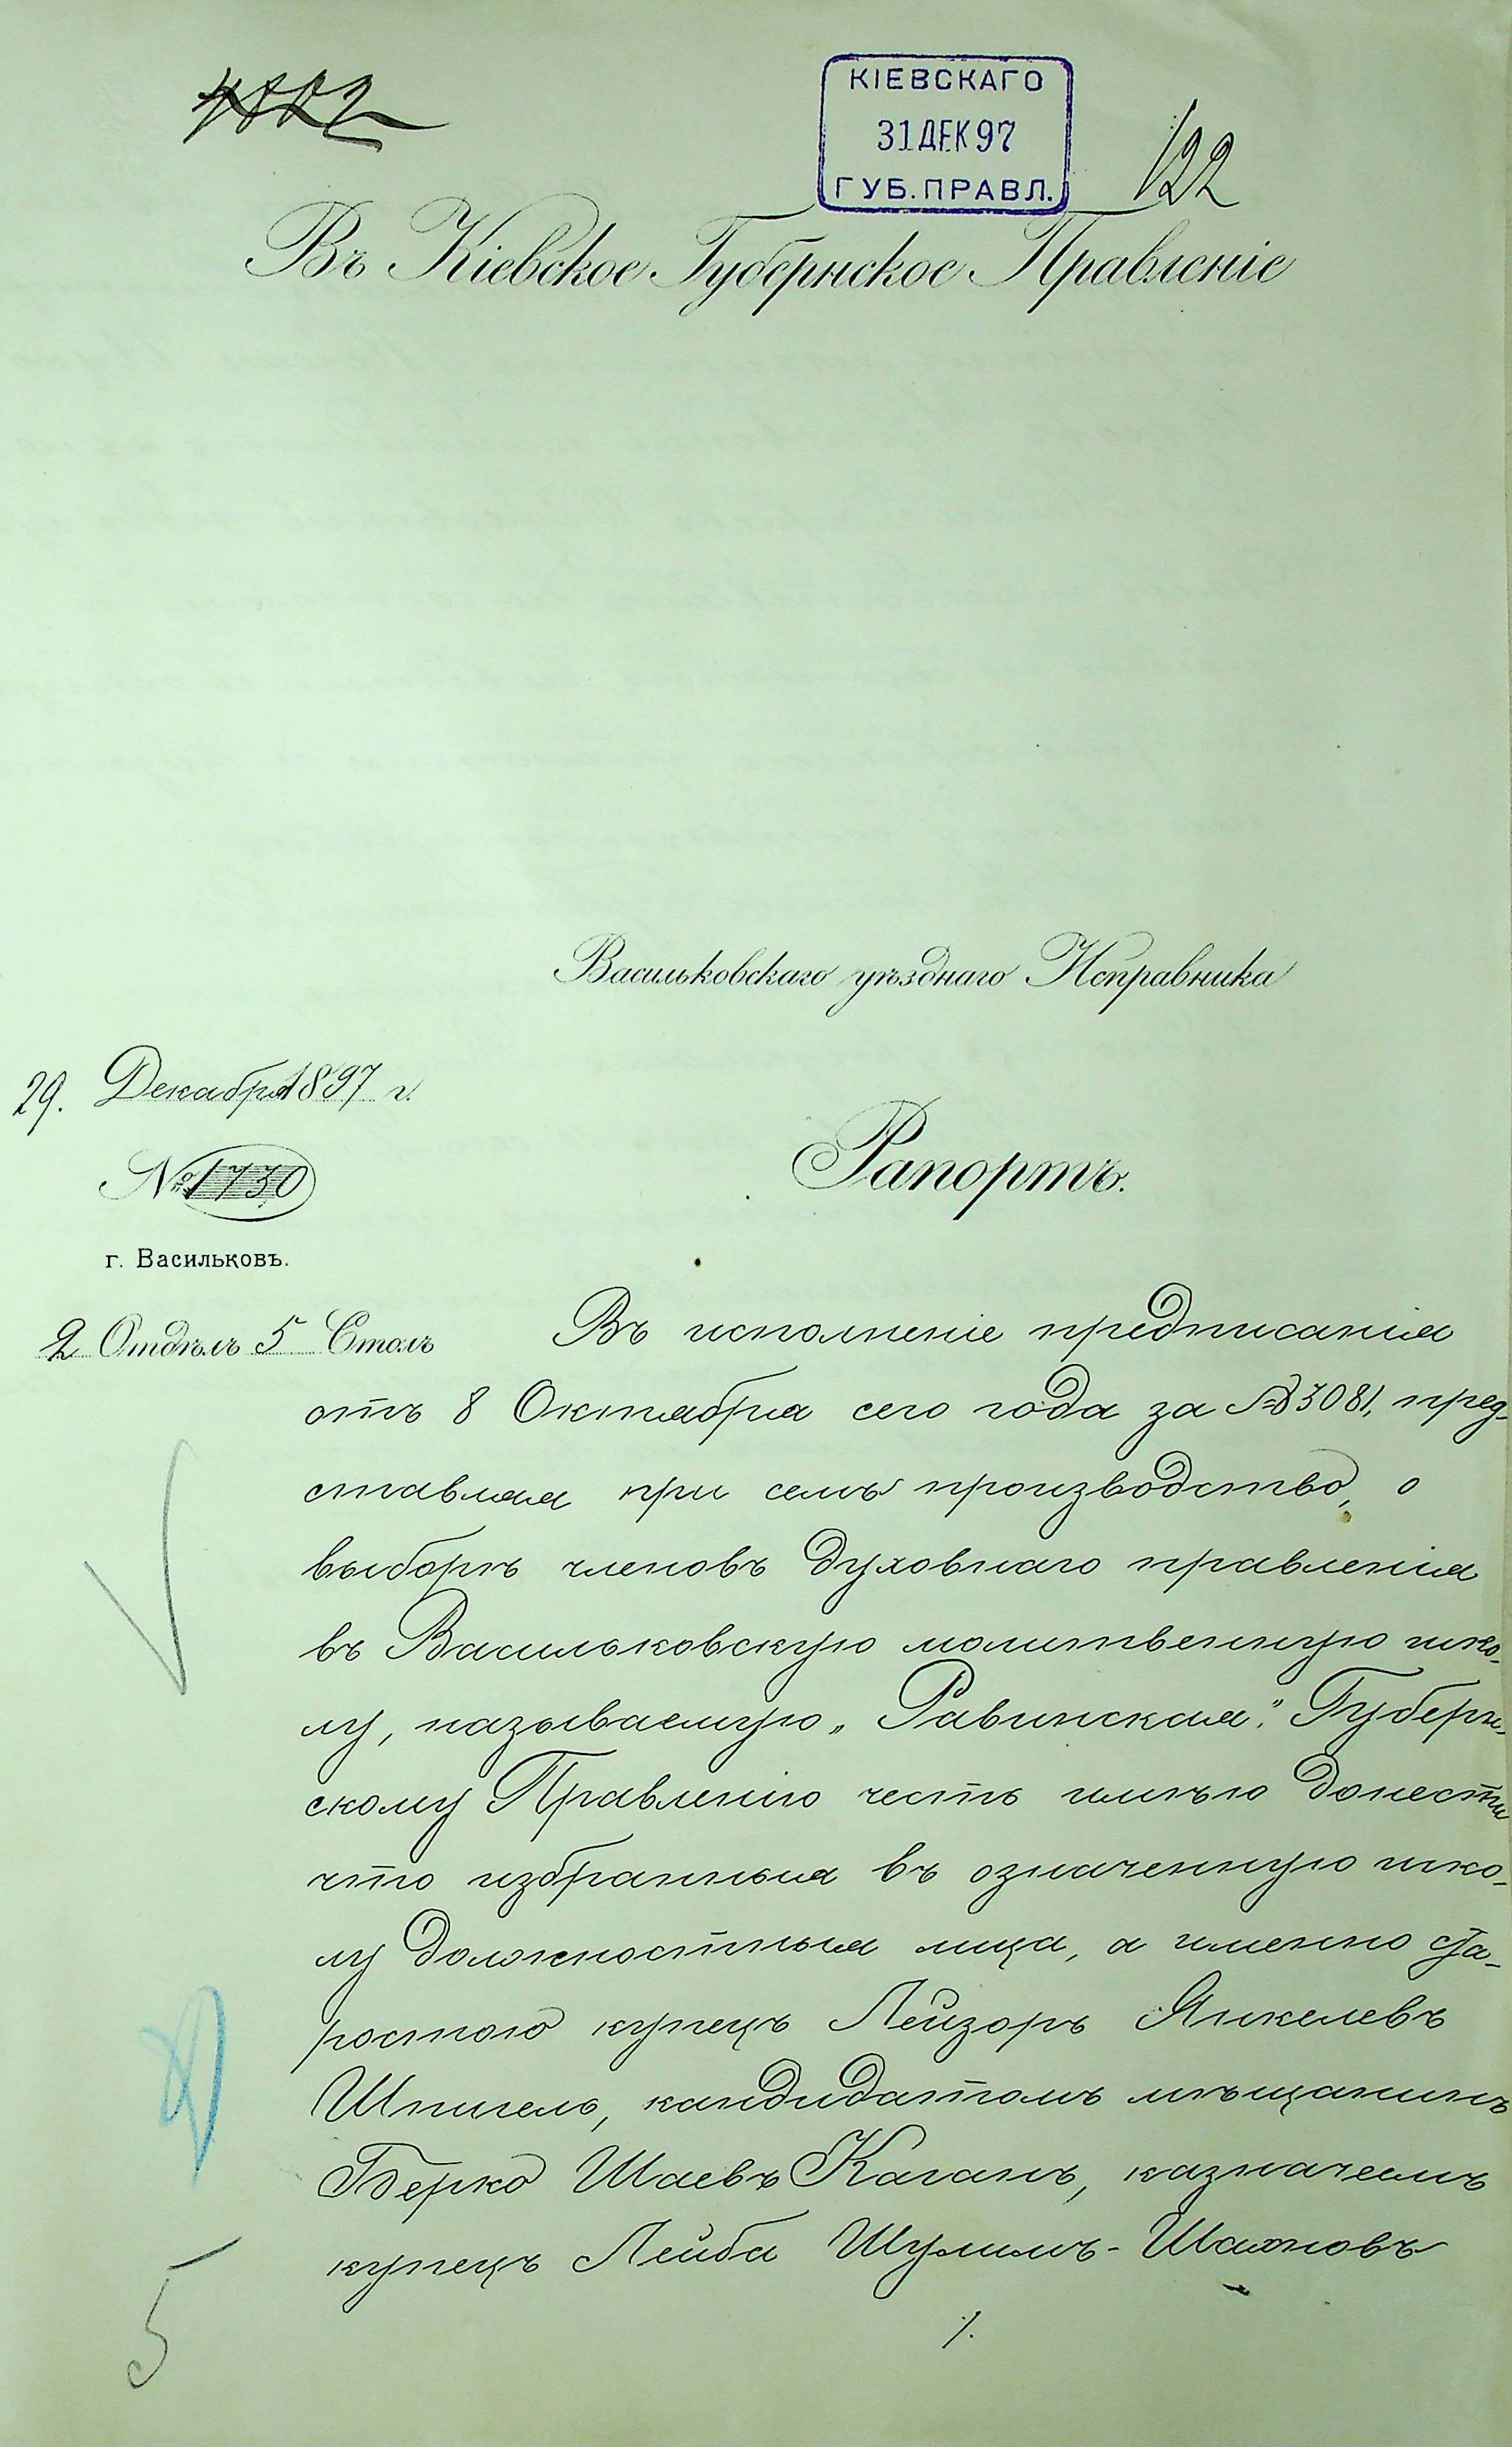 КІЕВСКАГО
31 ДЕК 97
ГУБ. ПРАВЛ.
122
Въ Кіевское Губернское Правленіе
Васильковскаго уѣзднаго Исправника
29. Декабря 1897 г.
№ 1730
г. Васильковъ.
Рапортъ.
2 Отдѣлъ 5 Столъ
Въ исполненіе предписанія
отъ 8 Октября сего года за № 3081, пред-
ставляя при семъ производство, о
выборѣ членовъ духовнаго правленія
въ Васильковскую молитвенную шко-
лу, называемую „Равинская". Губерн-
скому Правленію честь имѣю донести
что избранныя въ означенную шко-
лу должностныя лица, а именно ста-
ростою купецъ Лейзоръ Янкелевъ
Шпигель, кандидатомъ мѣщанинъ
Берко Шаевъ Каганъ, казначеемъ
купецъ Лейба Шулимъ-Шахновъ
/.
5